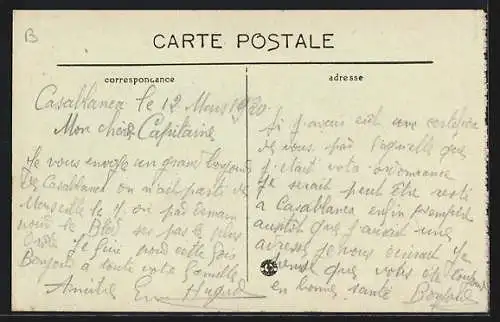 B
CARTE POSTALE
correspondance
adresse
Casablanca le 12 Mars 1920
Mon cher Capitaine
Je vous envoye un grand bonjour
de Casablanca on n'ait parti de
Marseille le 7, on par demain
pour le Bled pas le plus
je fini pour cette fois
Bonjour a toute vota famille
Amitié
Si j'avais eut une
de vous par laquelle que
j'etait vota ordonnance
Je serait peut être resté
a Casablanca, enfin
ausitot que j'aurait une
adresse je vous ecrirait Je
pense que vous ete toujours
en bonne santé Bonjour